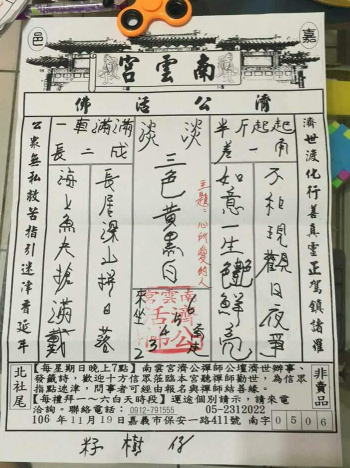 嘉
邑
南雲宮
濟公活佛
濟世渡化行善真靈正駕鎮諸羅
公眾無私救苦指引迷津壽延年
一斤起起角
半差一
一車滿滿
長二成
淡淡
不和現觀日夜爭
如意一生艷鮮亮
主題：心所愛的人
三色黃黑白
長尾深山拼日落
海上魚夫搶滿載
南雲宮
濟公
活佛
北社尾
【每星期日晚上7點】南雲宮濟公禪師公壇濟世辦事、
發籤詩，歡迎十方信眾蒞臨本宮聽禪師勸世，為信眾
指點迷津，問事者可經由報名與禪師結善緣。
【每禮拜一、六白天時段】運途個別請示，請來電
洽詢。聯絡電話：0912-791555 05-2312022
106年11月19日嘉義市保安一路411號 南字
0506
非賣品
籽 樹 仔